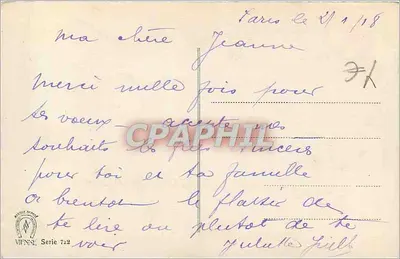 Paris le 2/1/18
Ma chère Jeanne
Merci mille fois pour
tes voeux - accepte mes
souhaits les plus sincères
pour toi et ta famille
A bientôt le plaisir de
te lire ou plutôt de te
voir Juliette
CPAPHIL
VIENNE Serie 722